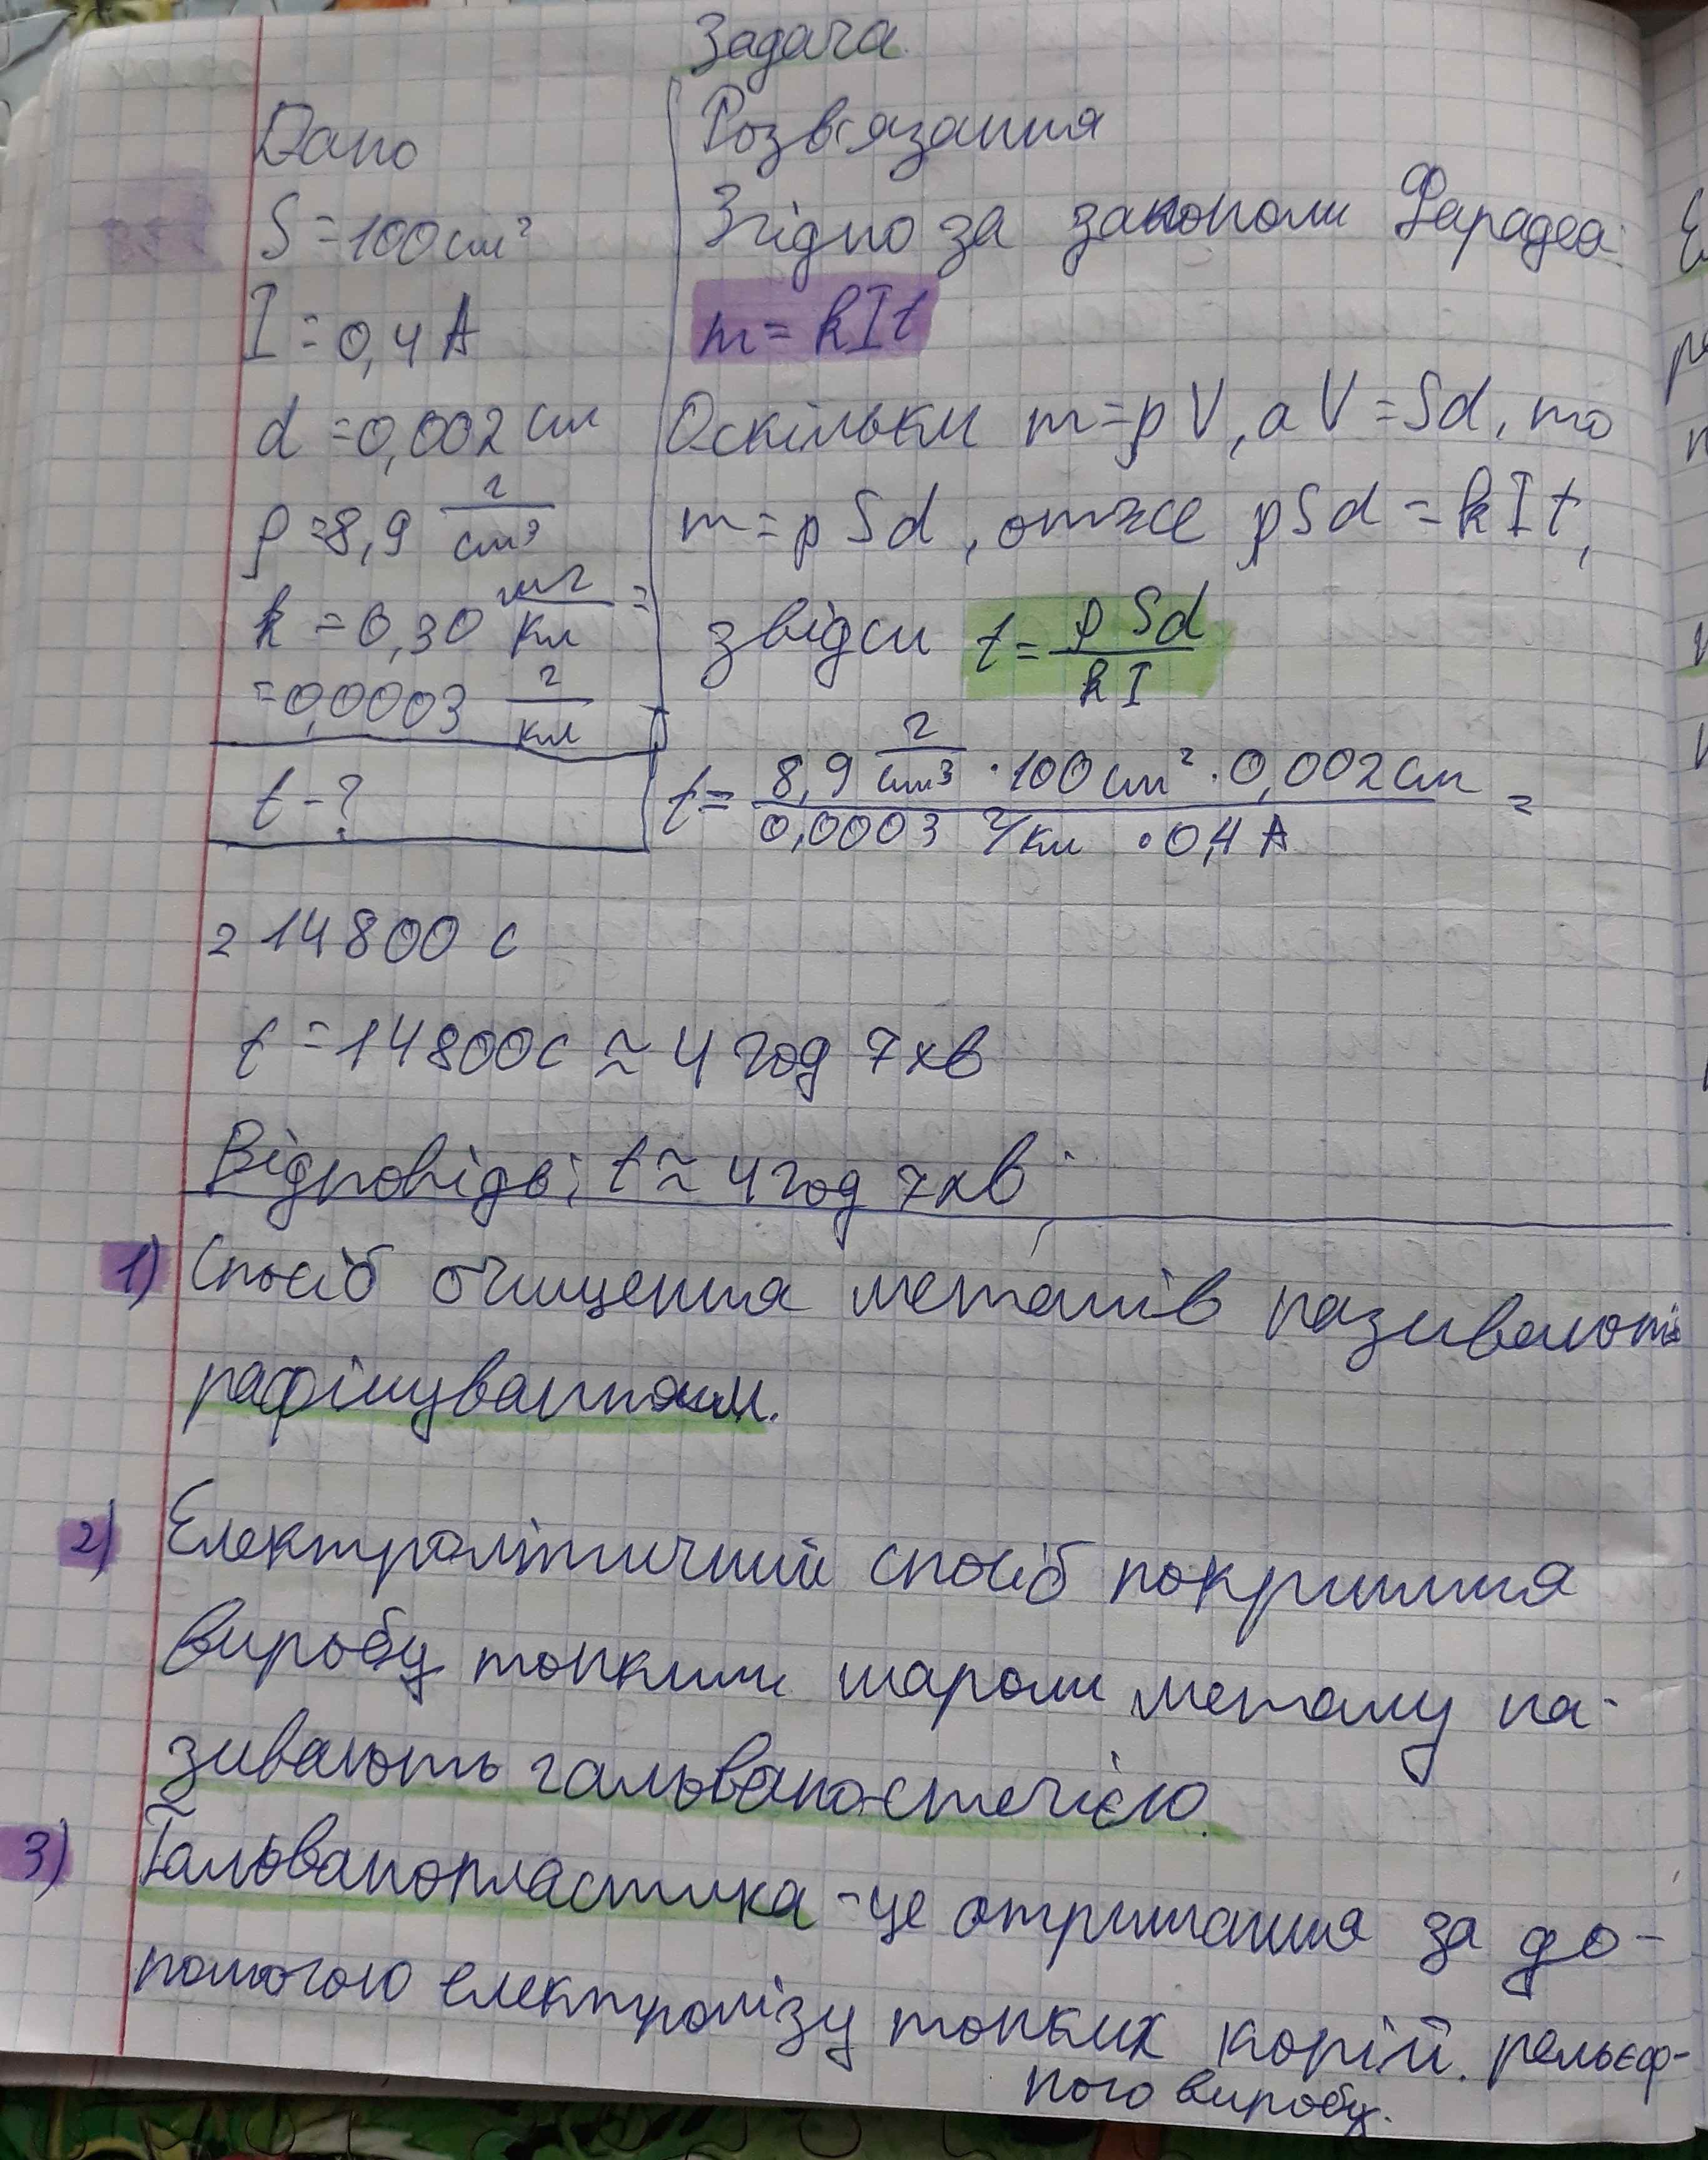 Задача
Дано
S = 100 см²
I = 0,4 А
d = 0,002 см
ρ = 8,9 г/см³
k = 0,30 мг/Кл =
= 0,0003 г/Кл
t - ?
Розв'язання
Згідно за законом Фарадея:
m = kIt
Оскільки m = ρV, а V = Sd, то
m = ρSd, отже ρSd = kIt,
звідси t = ρSd/kI
t = 8,9 г/см³ · 100 см² · 0,002 см / 0,0003 г/Кл · 0,4 А =
= 14800 с
t = 14800 с ≈ 4 год 7 хв
Відповідь: t ≈ 4 год 7 хв.
1) Спосіб очищення металів називають
рафінуванням.
2) Електролітичний спосіб покриття
виробу тонким шаром металу на-
зивають гальваностегією.
3) Гальванопластика - це отримання за до-
помогою електролізу тонких копій. рельєф-
ного виробу.